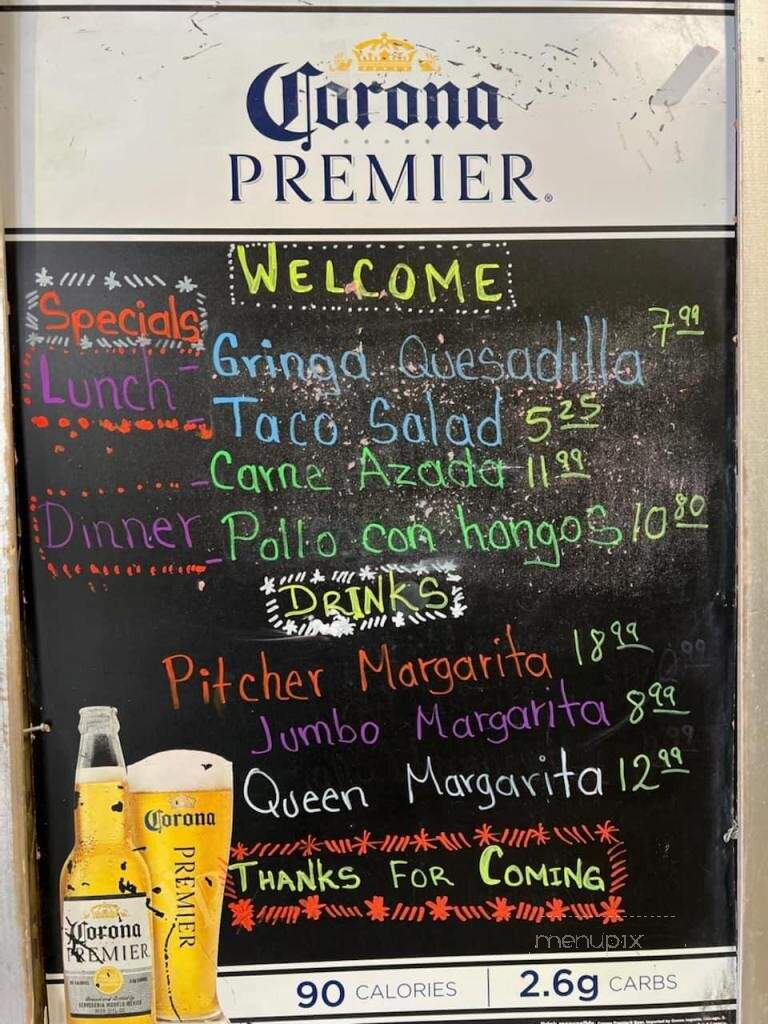 Corona
PREMIER®
WELCOME
Specials
7.99
Lunch - Gringa Quesadilla
- Taco Salad 5.25
- Carne Azada 11.99
Dinner - Pollo con hongos 10.80
DRINKS
Pitcher Margarita 18.99
Jumbo Margarita 8.99
Queen Margarita 12.99
Corona
PREMIER
THANKS FOR COMING
Corona
PREMIER
menupix
90 CALORIES | 2.6g CARBS